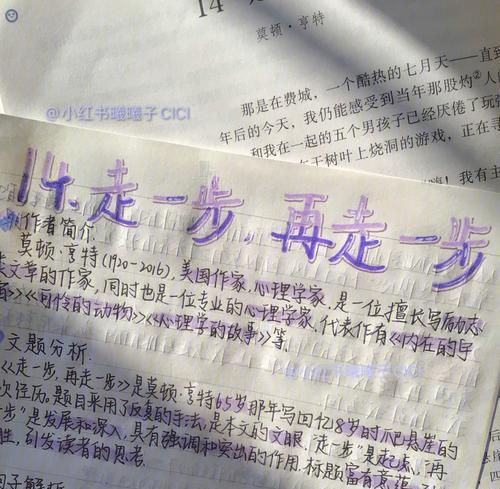 14
莫顿·亨特
那是在费城，一个酷热的七月天——直到
年后的今天，我仍能感受到当年那股灼②人的
和我在一起的五个男孩子已经厌倦了玩弹
在干树叶上烧洞的游戏，正在寻
嗨！我有主
@小红书曦曦子CICI
14.走一步，再走一步
作者简介.
莫顿·亨特(1920-2016)，美国作家，心理学家，是一位擅长写励志
类文章的作家，同时也是一位专业的心理学家，代表作有《内在的
》《可怜的动物》《心理学的故事》等
文题分析.
《走一步，再走一步》是莫顿·亨特65岁那年写回忆8岁的爬悬崖的
次径历。题目采用了反复的手法，是本文的文眼，"走一步"是起点，"再
一步"是发展和深入，具有强调和突出的作用.标题富有意
胜，引发读者的思考.
解析